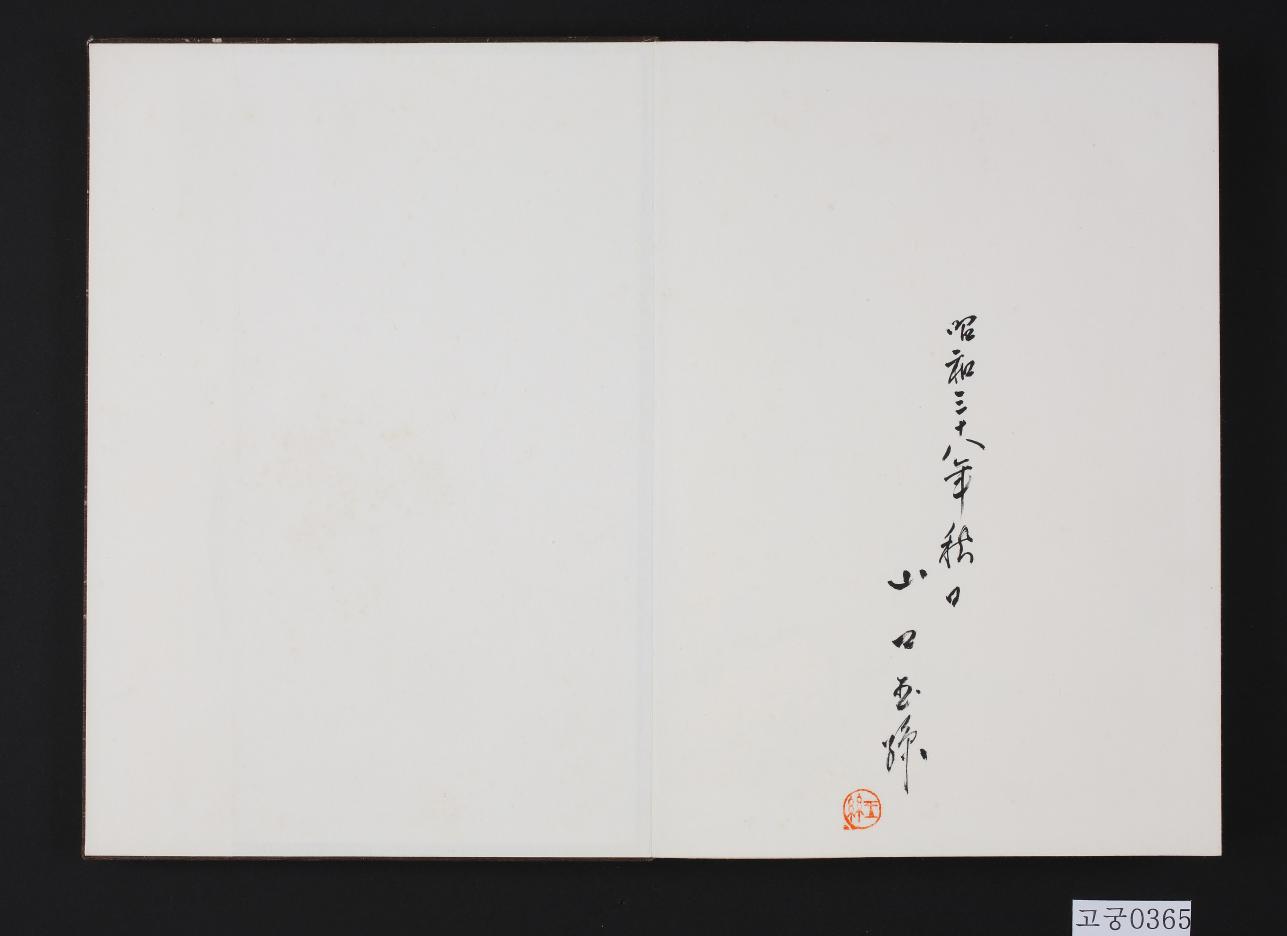 昭和三十八年秋日
山口玉
玉
고궁0365